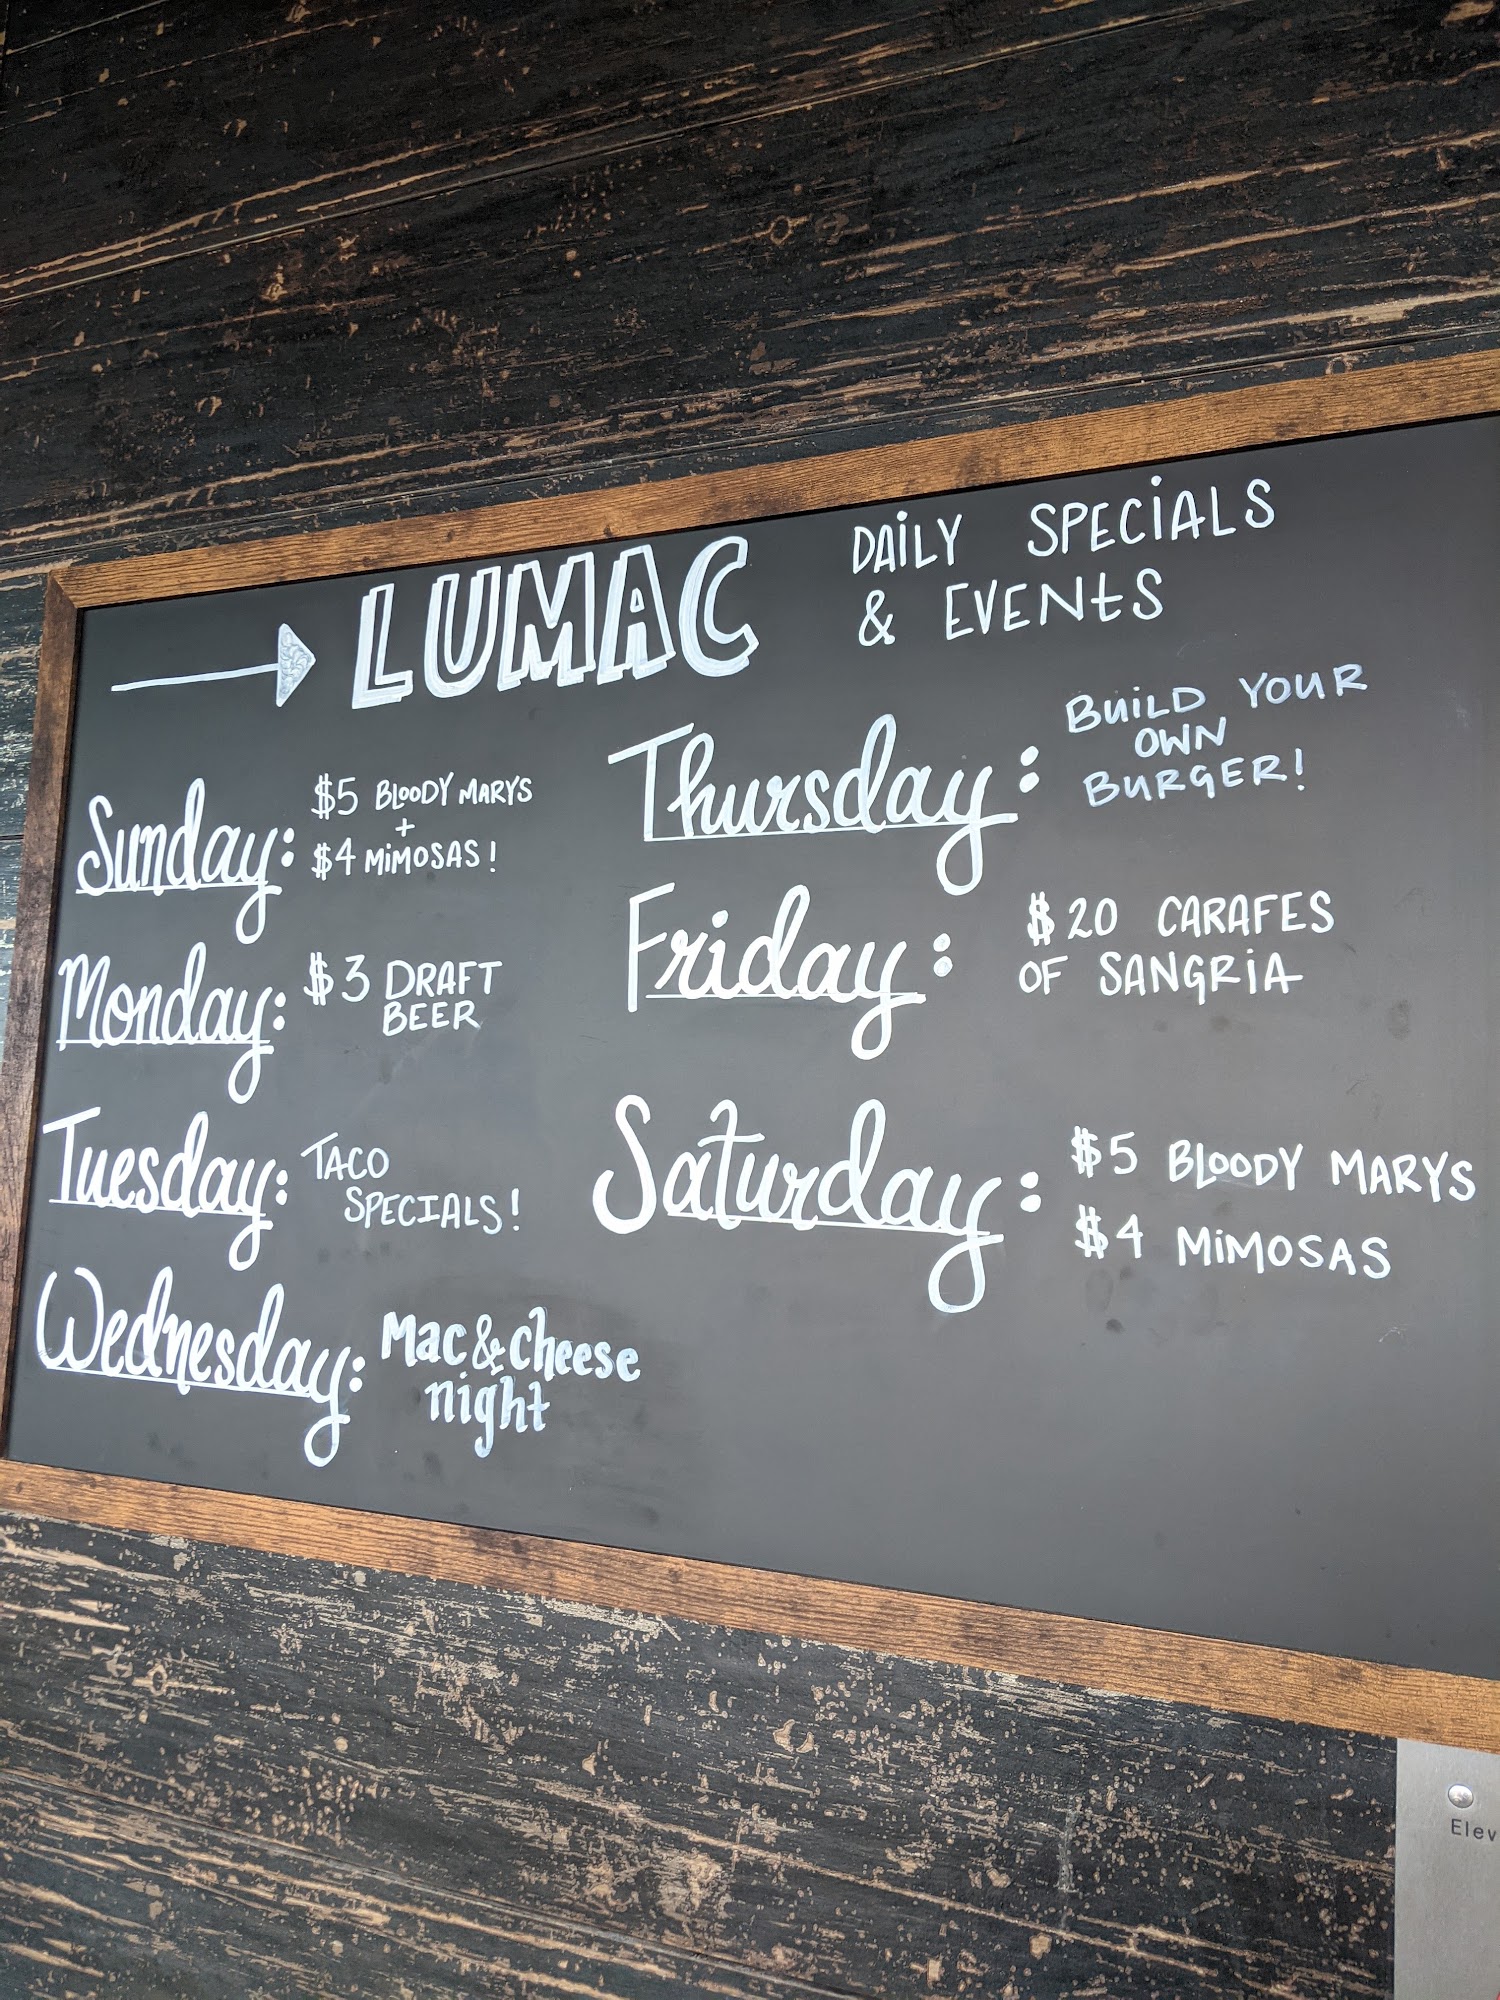 LUMAC DAILY SPECIALS
& EVENTS
Sunday: $5 BLOODY MARYS
+
$4 MIMOSAS!
Monday: $3 DRAFT
BEER
Tuesday: TACO
SPECIALS!
Wednesday: Mac & cheese
night
Thursday: BUILD YOUR
OWN
BURGER!
Friday: $20 CARAFES
OF SANGRIA
Saturday: $5 BLOODY MARYS
$4 MIMOSAS
Elev